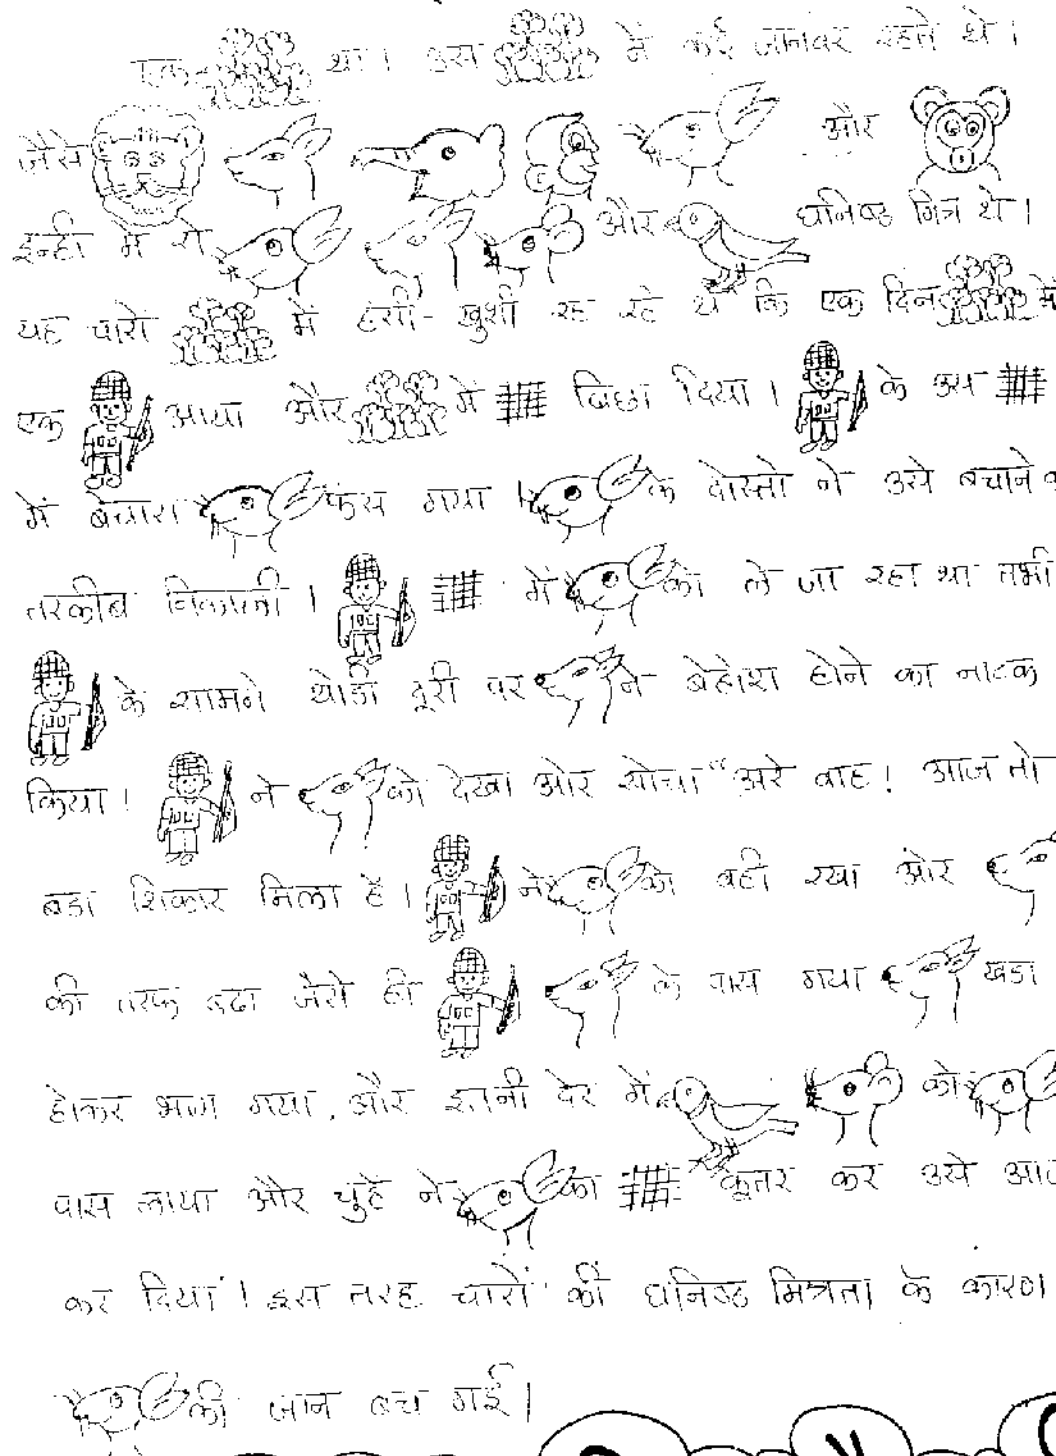 एक था। उस में कई जानवर रहते थे।
जैसे और
इन्ही में से और घनिष्ठ मित्र थे।
यह चारो में हसी-खुशी रह रहे थे कि एक दिन में
एक आया और में बिछा दिया। के उस
में बेचारा फंस गया। के दोस्तो ने उसे बचाने
तरकीब निकाली। में को ले जा रहा था तभी
के सामने थोडी दूरी पर ने बेहोश होने का नाटक
किया। ने को देखा ओर सोचा "अरे वाह! आज तो
बडा शिकार मिला है। ने को वही रखा और
की तरफ बढा जैसे ही के पास गया खडा
होकर भाग गया, और इतनी देर में को
पास लाया और चुहे ने का कूतर कर उसे
कर दिया। इस तरह चारों की घनिष्ठ मित्रता के कारण
की जान बच गई।